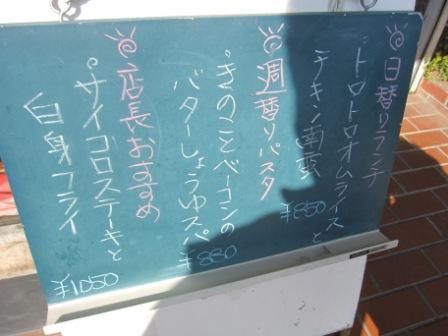 日替りランチ
・トロトロオムライスと
チキン南蛮
¥850
週替りパスタ
・きのことベーコンの
バターしょうゆスパ
¥880
店長おすすめ
・サイコロステーキと
白身フライ
¥1050